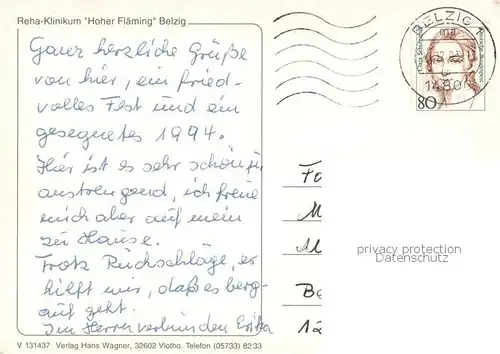 Reha-Klinikum "Hoher Fläming" Belzig
Ganz herzliche Grüße
von hier, ein fried-
volles Fest und ein
gesegnetes 1994.
Hier ist es sehr schön,
anstrengend, ich freue
mich aber auf mein
zu Hause.
Trotz Rückschläge, es
hilft mir, daß es berg-
auf geht.
Im Herrn verbunden Erika
V 131437 Verlag Hans Wagner, 32602 Vlotho. Telefon (05733) 82 33
BELZIG
1480
Clara Schumann
Deutsche Bundespost
80
Fo
M
Be
privacy protection
Daten-/Kopierschutz